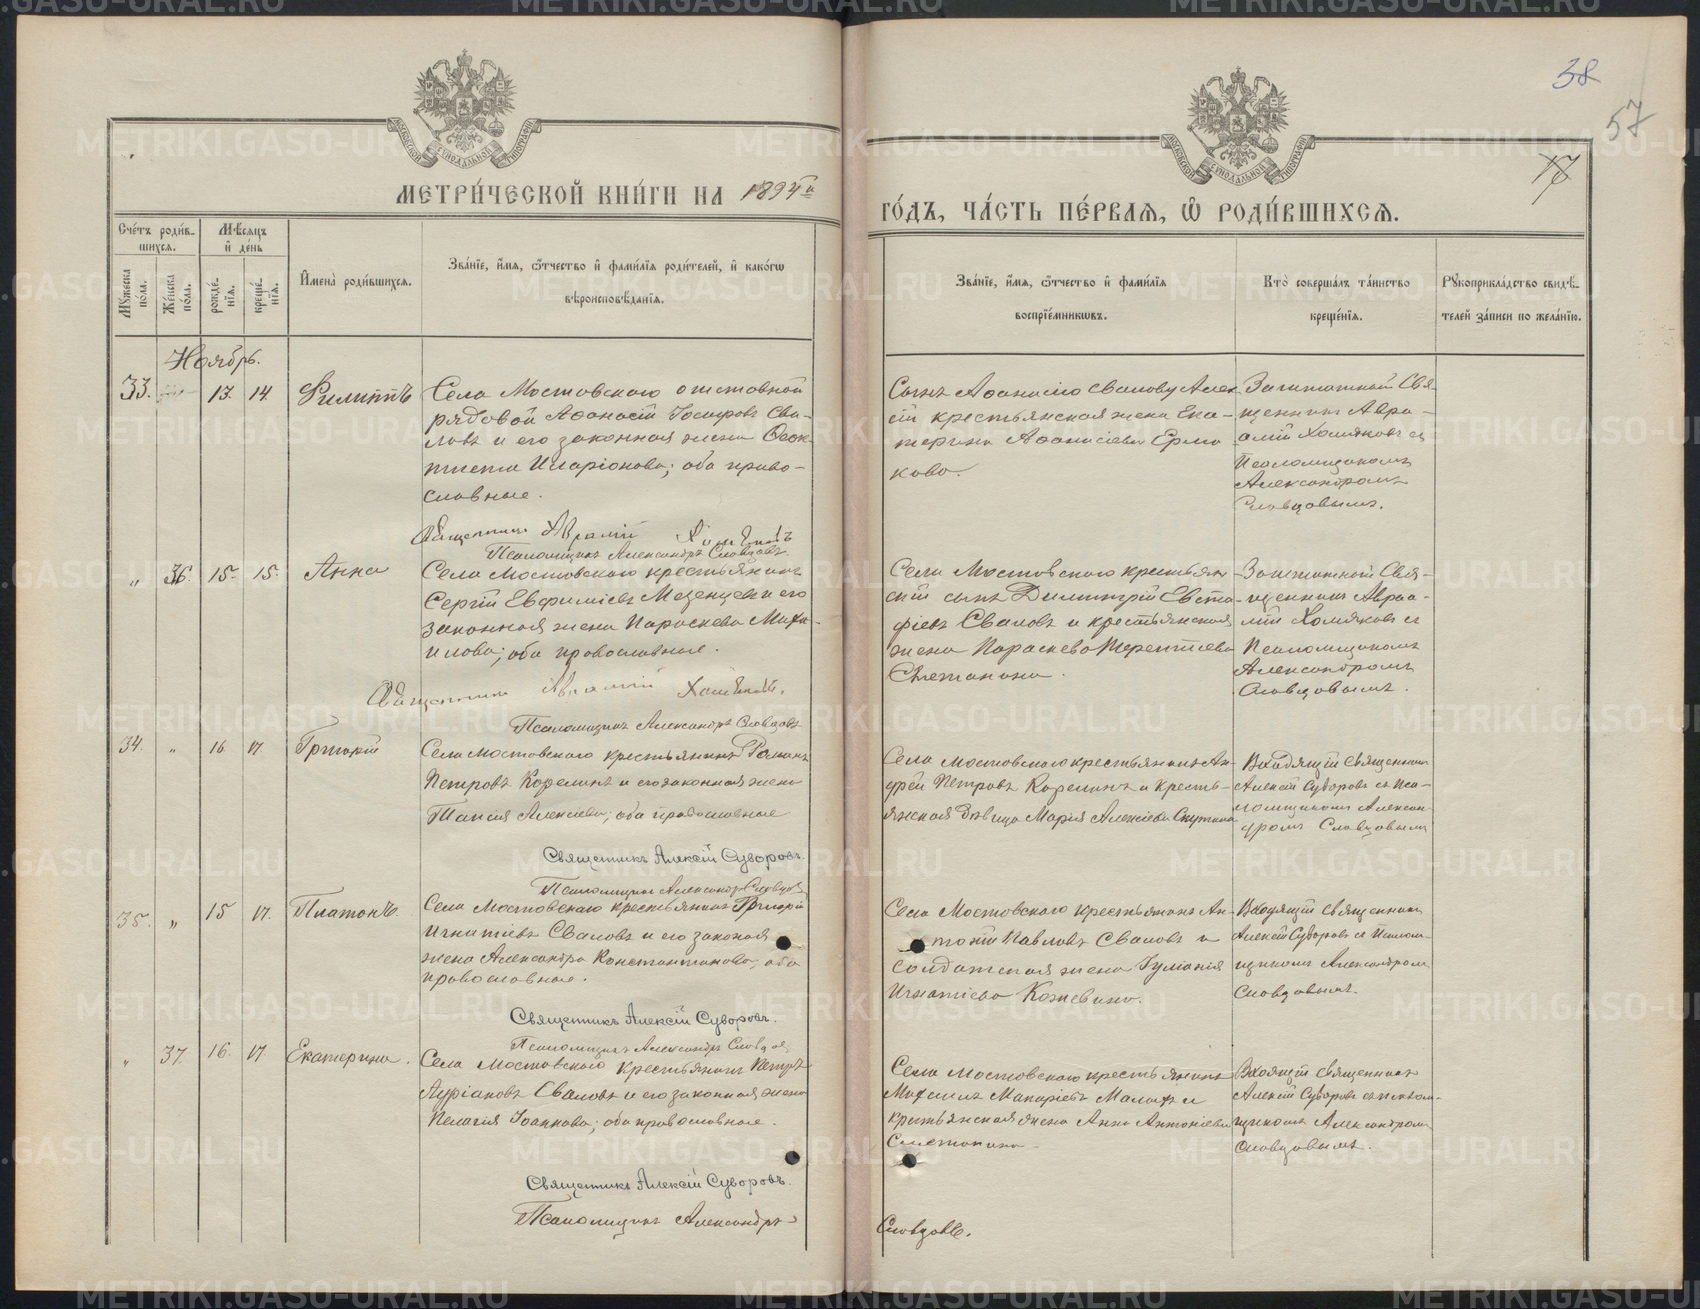 38
57
МОСКОВСКОЙ СУНОДАЛЬНОЙ ТИПОГРАФІИ
МЕТРИ́ЧЕСКОЙ КНИ́ГИ НА 1894й
ГО́ДЪ, ЧА́СТЬ ПЕ́РВАЯ, Ѡ РОДИ́ВШИХСЯ.
Сче́тъ роди́вшихся.
Мѣ́сяцъ и де́нь
Му́жеска по́ла.
Же́нска по́ла.
рожде́нїя.
креще́нїя.
И҆мена̀ роди́вшихся.
Зва́нїе, и҆́мя, ѻ҆́тчество и҆ фами́лїя роди́телей, и҆ како́гѡ
вѣроисповѣ́данїя.
Зва́нїе, и҆́мя, ѻ҆́тчество и҆ фами́лїя
воспрїе́мникѡвъ.
Кто̀ соверша́лъ та́инство
креще́нїя.
Рꙋкоприкла́дство свидѣ́-
телей за́писи по жела́нїю.
Ноябрь.
33. 13. 14. Филиппъ
Села Мостовскаго отставной
рядовой Аѳанасій Іосифовъ Сва-
ловъ и его законная жена Ѳеок-
тиста Иларіонова; оба право-
славные.
Священникъ Аврамій Хомяковъ
Псаломщикъ Александръ Словцовъ
Сынъ Аѳанасія Свалова Алек-
сій крестьянская жена Ека-
терина Аѳанасіева Ерма-
кова.
Заштатный Свя-
щенникъ Авра-
амій Хомяковъ съ
Псаломщикомъ
Александромъ
Словцовымъ.
„ 36. 15. 15. Анна
Села Мостовскаго крестьянинъ
Сергій Евфиміевъ Мезенцевъ и его
законная жена Параскева Миха-
илова; оба православные.
Священникъ Аврамій Хомяковъ.
Псаломщикъ Александръ Словцовъ
Села Мостовскаго крестьян-
скій сынъ Димитрій Евста-
фіевъ Сваловъ и крестьянская
жена Параскева Терентіева
Сметанина.
Заштатный Свя-
щенникъ Авраа-
мій Хомяковъ съ
Псаломщикомъ
Александромъ
Словцовымъ.
34. „ 16 17. Григорій
Села Мостовскаго крестьянинъ Романъ
Петровъ Корелинъ и его законная жена
Таисія Алексіева; оба православные
Священникъ Алексій Суворовъ.
Псаломщикъ Александръ Словцовъ
Села Мостовскаго крестьянинъ Ан-
дрей Петровъ Корелинъ и кресть-
янская дѣвица Марія Алексіева
Входящій Священникъ
Алексій Суворовъ съ Пса-
ломщикомъ Алексан-
дромъ Словцовымъ
35. „ 15 17. Платонъ.
Села Мостовскаго крестьянинъ Григорій
Игнатіевъ Сваловъ и его законная
жена Александра Константинова, оба
православные.
Священникъ Алексій Суворовъ.
Псаломщикъ Александръ Словцовъ
Села Мостовскаго крестьянинъ Ан-
тоній Павловъ Сваловъ и
солдатская жена Іуліанія
Игнатіева Кожевина.
Входящій Священникъ
Алексій Суворовъ съ Псалом-
щикомъ Александромъ
Словцовымъ.
„ 37 16. 17 Екатерина.
Села Мостовскаго крестьянинъ Петръ
Сваловъ и его законная жена
Пелагія Іоаннова; оба православные.
Священникъ Алексій Суворовъ.
Псаломщикъ Александръ
Села Мостовскаго крестьянинъ
Максимъ Макаріевъ Малыхъ и
крестьянская жена Анна Антоніева
Сметанина
Входящій Священникъ
Алексій Суворовъ съ псалом-
щикомъ Александромъ
Словцовымъ.
Словцовъ.
METRIKI.GASO-URAL.RU